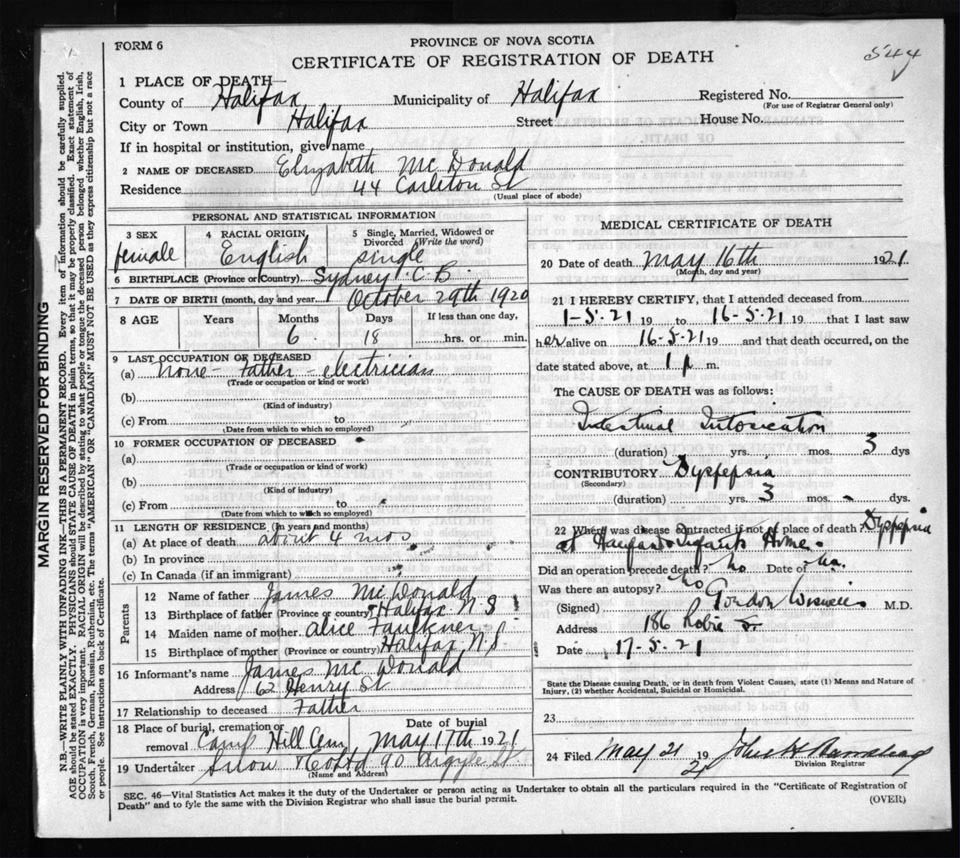 FORM 6
PROVINCE OF NOVA SCOTIA
CERTIFICATE OF REGISTRATION OF DEATH
544
1 PLACE OF DEATH—
County of Halifax Municipality of Halifax Registered No.
(For use of Registrar General only)
City or Town Halifax Street House No.
If in hospital or institution, give name
2 NAME OF DECEASED Elizabeth McDonald
Residence 44 Carleton St
(Usual place of abode)
PERSONAL AND STATISTICAL INFORMATION
3 SEX 4 RACIAL ORIGIN 5 Single, Married, Widowed or Divorced (Write the word)
female English single
6 BIRTHPLACE (Province or Country) Sydney C.B.
7 DATE OF BIRTH (month, day and year) October 29th 1920
8 AGE Years Months Days If less than one day,
6 18 hrs. or min.
9 LAST OCCUPATION OF DECEASED
(a) none - Father - electrician
(Trade or occupation or kind or work)
(b)
(Kind of industry)
(c) From to
(Date from which to which so employed)
10 FORMER OCCUPATION OF DECEASED
(a)
(Trade or occupation or kind of work)
(b)
(Kind of industry)
(c) From to
(Date from which to which so employed)
11 LENGTH OF RESIDENCE (In years and months)
(a) At place of death about 4 mos
(b) In province
(c) In Canada (if an immigrant)
Parents
12 Name of father James McDonald
13 Birthplace of father (Province or country) Halifax N S
14 Maiden name of mother Alice Faulkner
15 Birthplace of mother (Province or country) Halifax N.S
16 Informant's name James McDonald
Address 62 Henry St
17 Relationship to deceased Father
18 Place of burial, cremation or removal Camp Hill Cem Date of burial May 17th 1921
19 Undertaker Snow 90 Argyle St.
(Name and Address)
MEDICAL CERTIFICATE OF DEATH
20 Date of death May 16th 1921
(Month, day and year)
21 I HEREBY CERTIFY, that I attended deceased from
1-5-21 19 to 16-5-21 19 that I last saw
her alive on 16-5-21 19 and that death occurred, on the
date stated above, at 1 p m.
The CAUSE OF DEATH was as follows:
Intestinal Intoxication
(duration) yrs. mos. 3 dys
CONTRIBUTORY Dyspepsia
(Secondary)
(duration) yrs. 3 mos. - dys.
22 Where was disease contracted if not at place of death Dyspepsia
at Infants Home.
Did an operation precede death? no Date of
Was there an autopsy? no
(Signed) Gordon Wiswell M.D.
Address 186 Robie St
Date 17-5-21
State the Disease causing Death, or in death from Violent Causes, state (1) Means and Nature of
Injury, (2) whether Accidental, Suicidal or Homicidal.
23
24 Filed May 21 19 21
Division Registrar
SEC. 46—Vital Statistics Act makes it the duty of the Undertaker or person acting as Undertaker to obtain all the particulars required in the "Certificate of Registration of
Death" and to fyle the same with the Division Registrar who shall issue the burial permit.
(OVER)
MARGIN RESERVED FOR BINDING
N.B.—WRITE PLAINLY WITH UNFADING INK—THIS IS A PERMANENT RECORD. Every item of information should be carefully supplied.
AGE should be stated EXACTLY. PHYSICIANS should STATE CAUSE OF DEATH in plain terms, so that it may be properly classified. Exact statement of
OCCUPATION is very important. RACIAL ORIGIN will be described by stating to what people or tongue the deceased person belonged whether English, Irish,
Scotch, French, German, Russian, Ruthenian, etc. The terms "AMERICAN" OR "CANADIAN" MUST NOT BE USED as they express citizenship but not a race
or people. See instructions on back of Certificate.